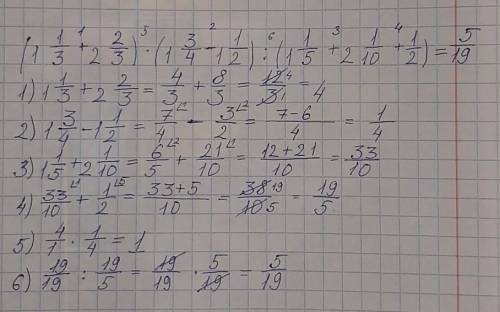 (1 1/3 +¹ 2 2/3) ·⁵ (1 3/4 -² 1 1/2) :⁶ (1 1/5 +³ 2 1/10 +⁴ 1/2) = 5/19
1) 1 1/3 + 2 2/3 = 4/3 + 8/3 = 12⁴/3₁ = 4
2) 1 3/4 - 1 1/2 = 7/4 ⌊¹ - 3/2 ⌊² = 7-6/4 = 1/4
3) 1 1/5 + 2 1/10 = 6/5 ⌊² + 21/10 ⌊¹ = 12+21/10 = 33/10
4) 33/10 ⌊¹ + 1/2 ⌊⁵ = 33+5/10 = 38¹⁹/10₅ = 19/5
5) 4/1 · 1/4 = 1
6) 19/19 : 19/5 = 19/19 · 5/19 = 5/19